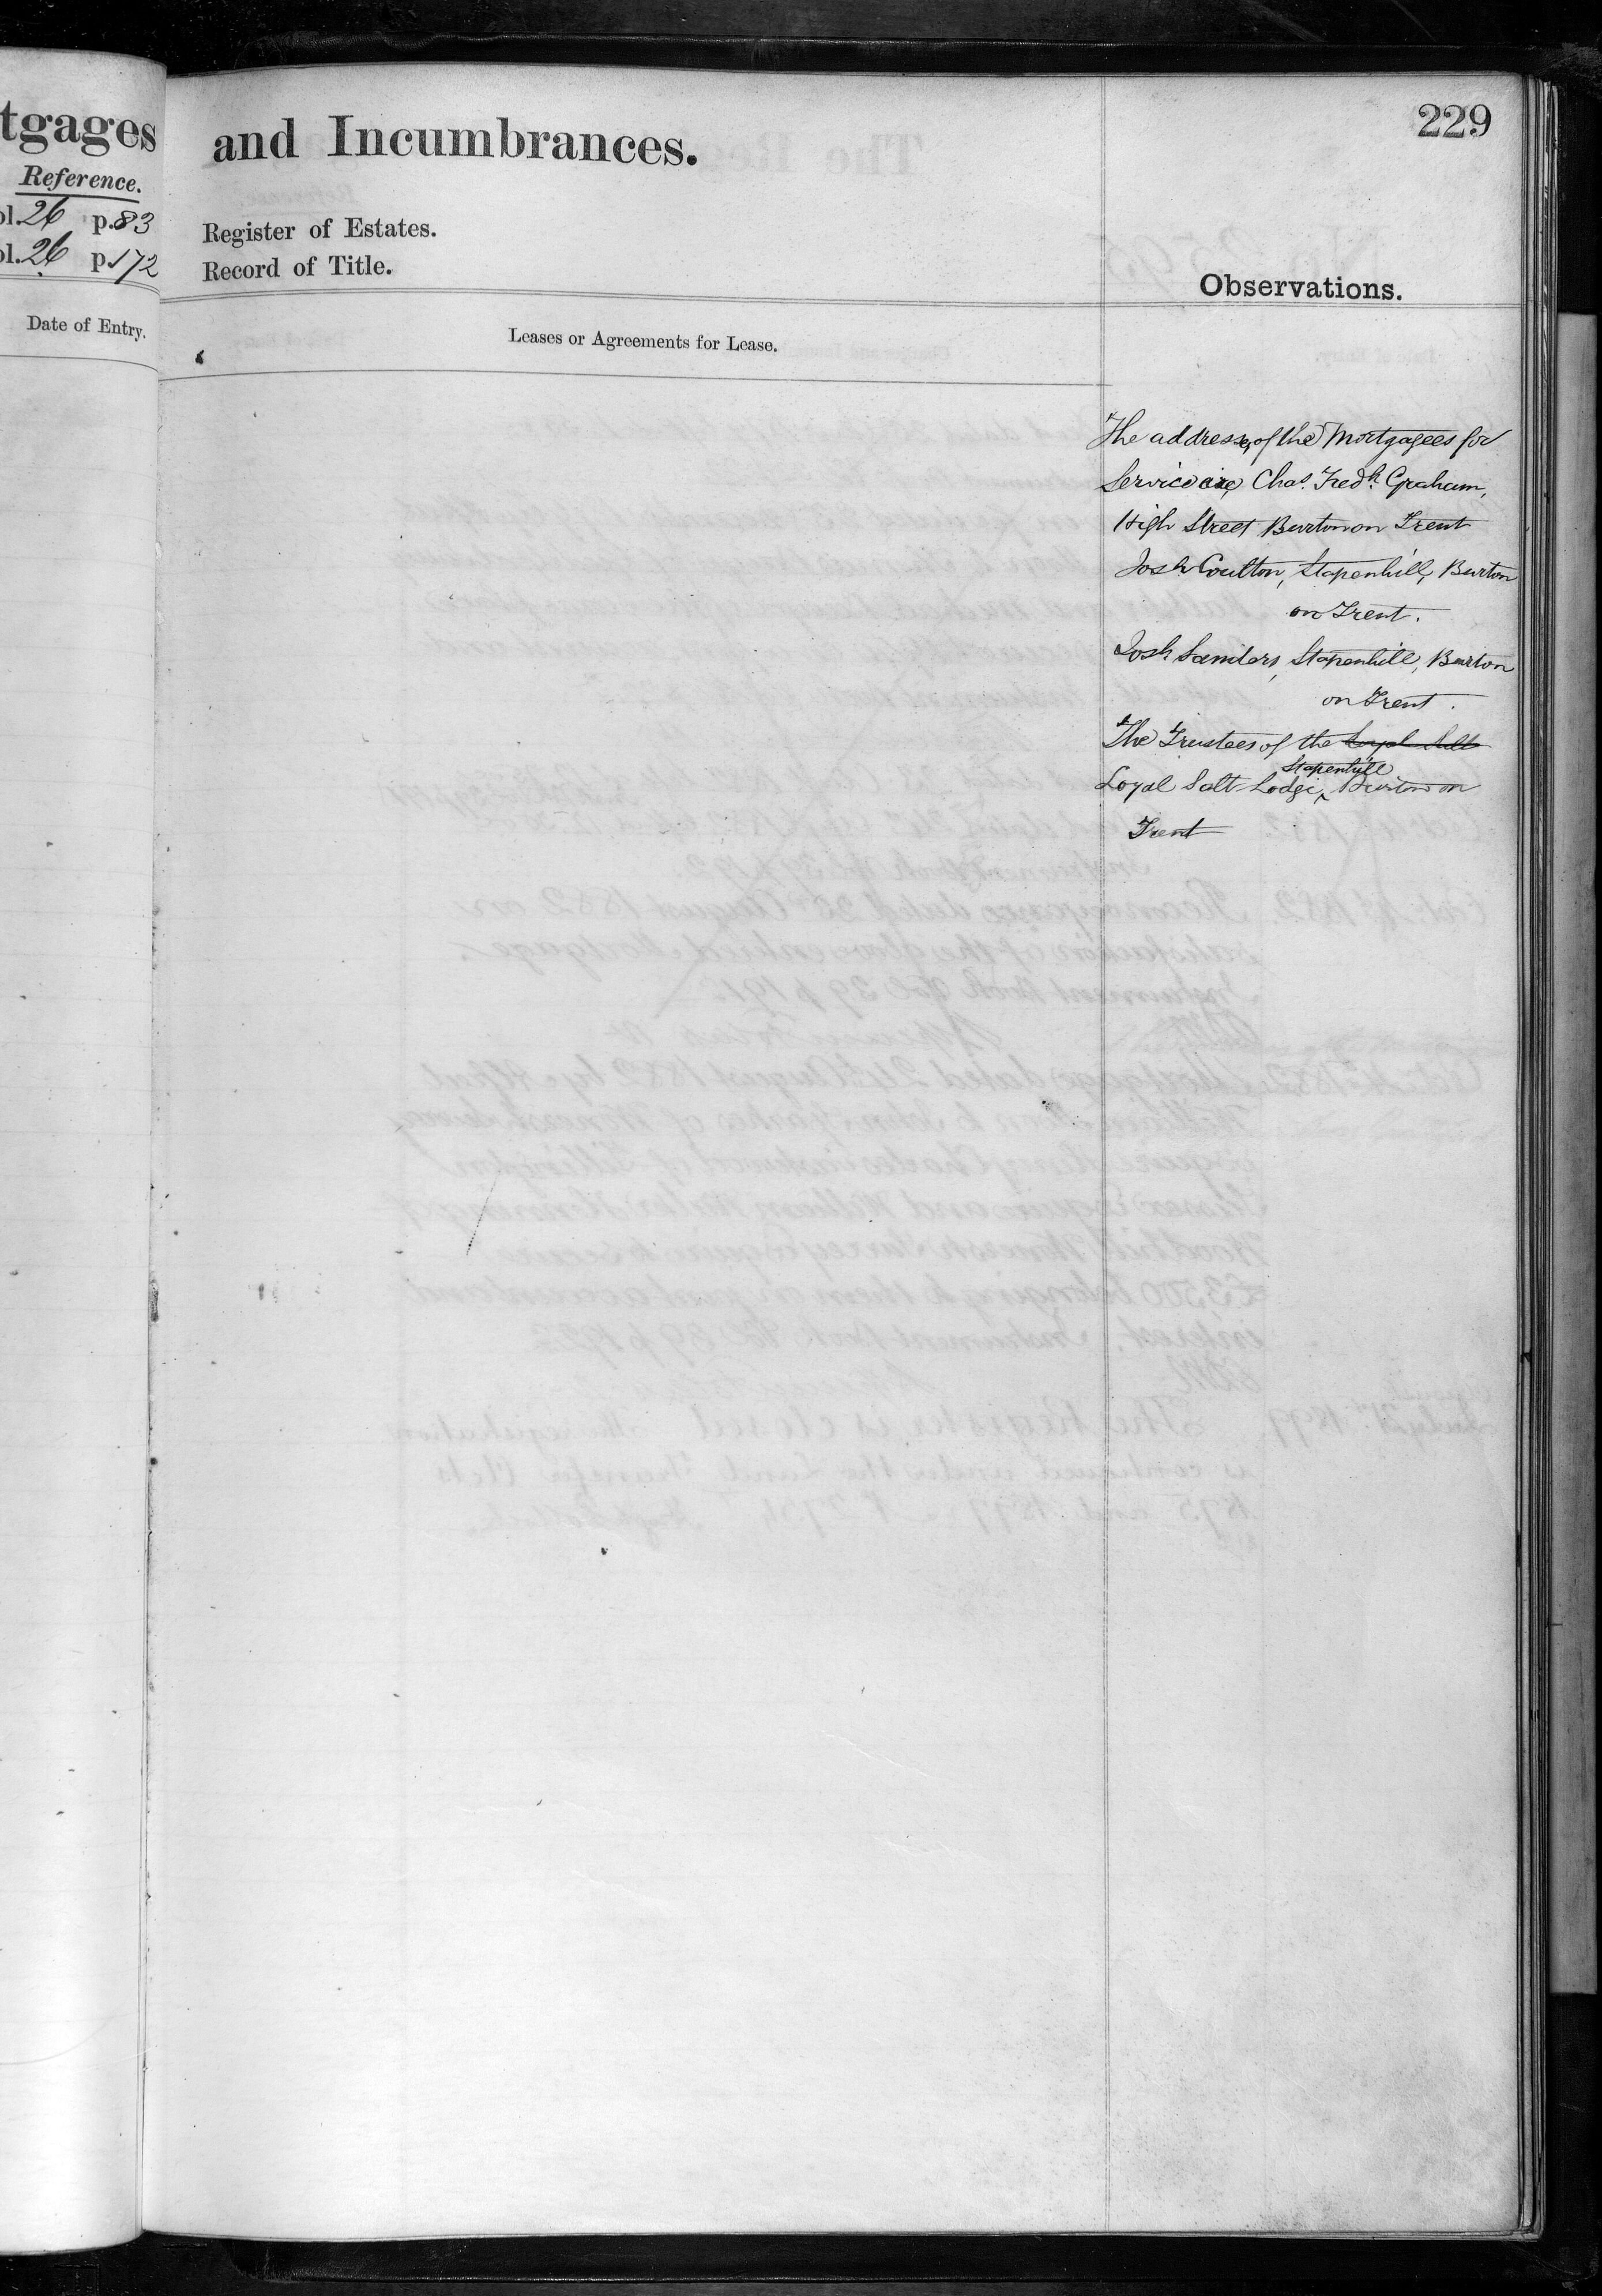 tgages
Reference.
ol. 26 p. 83
ol. 26 p. 172
Date of Entry.
and Incumbrances.
229
Register of Estates.
Record of Title.
Observations.
Leases or Agreements for Lease.
The addresses of the Mortgagees for
Service are, Chas. Fredk. Graham,
High Street Burton on Trent
Josh. Coulton, Stapenhill, Burton
on Trent.
Josh Sanders, Stapenhill, Burton
on Trent.
The Trustees of the Loyal Salt
Stapenhill
Loyal Salt Lodge, Burton on
Trent